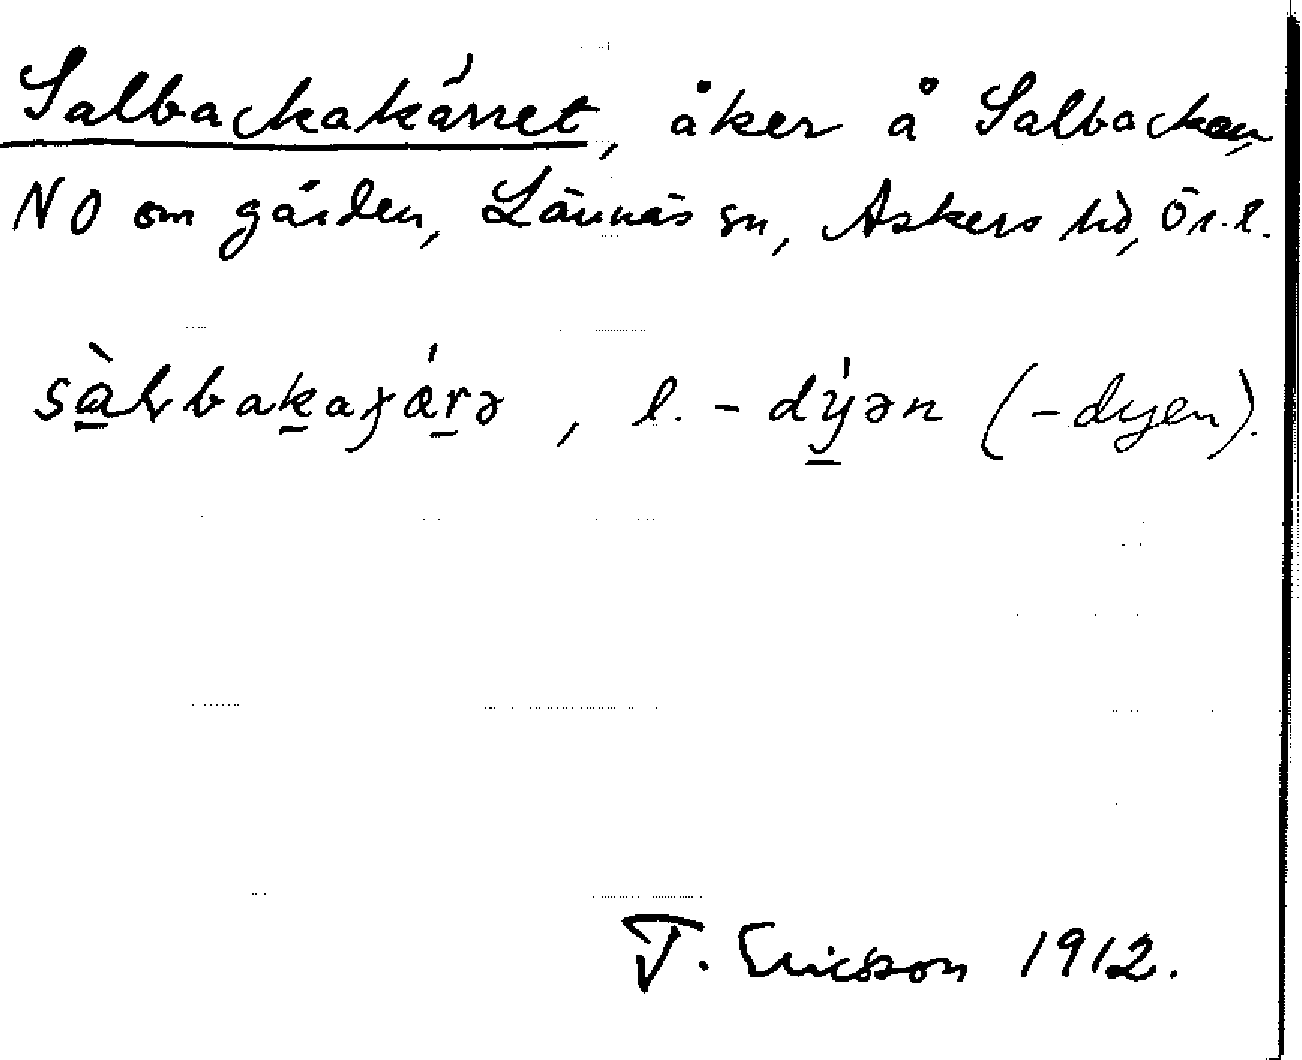 Salbackakärret, åker å Salbacken,
NO om gården, Lännäs sn, Askers hd, Ör. l.
sàlbakaɟǽrə, l. -dýən (-dyen).
T. Ericsson 1912.